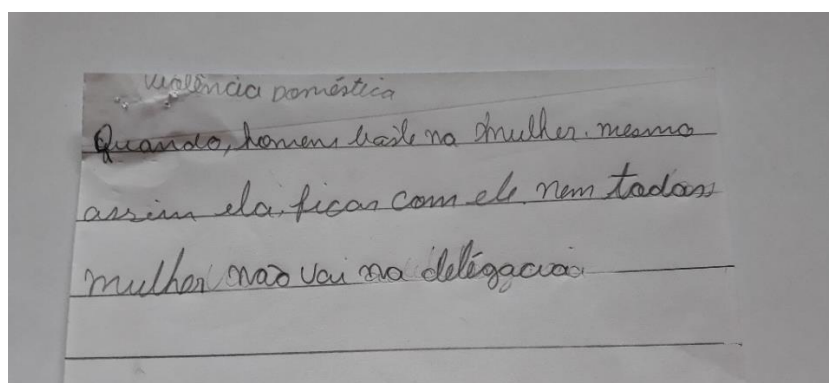 violência Doméstica
Quando, homens baste na mulher. mesmo
assim ela, ficar com ele. nem todas
mulher não vai na delégacia